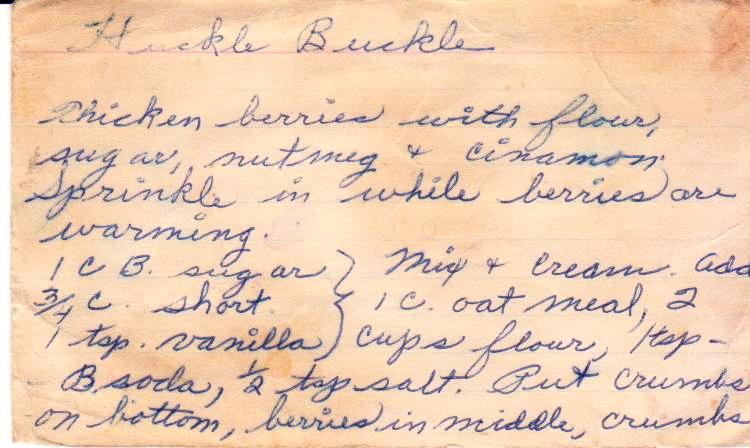 Huckle Buckle
Thicken berries with flour,
sugar, nutmeg + cinamon.
Sprinkle in while berries are
warming.
1 C B. sugar } Mix + cream. Add
3/4 C. short. } 1 C. oat meal, 2
1 tsp. vanilla } cups flour, 1 tsp -
B. soda, 1/2 tsp salt. Put crumbs
on bottom, berries in middle, crumbs